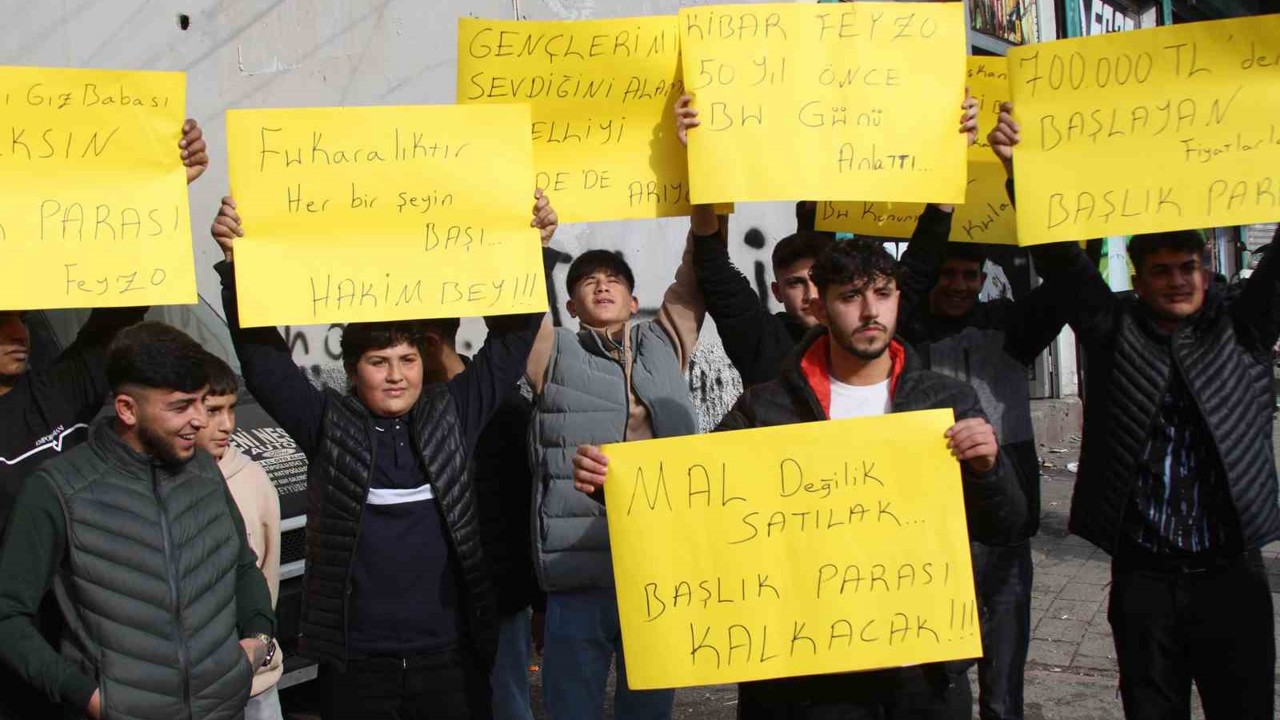 Gız Babası
PARASI
Feyzo
Fukaralıktır
Her bir şeyin
BAŞI...
HAKİM BEY!!!
GENÇLERİMİ
SEVDİĞİNİ
ELLİYİ
DE'DE
KİBAR FEYZO
50 Yıl ÖNCE
Bu Günü
Anlattı...
700.000 TL'den
BAŞLAYAN
Fiyatlarla
BAŞLIK
MAL Değilik
SATILAK...
BAŞLIK PARASI
KALKACAK!!!